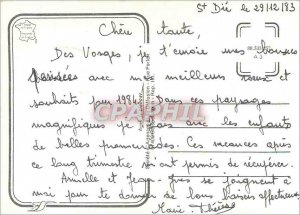 St Dié le 29/12/83
Chère tante,
Des Vosges, je t'envoie mes bonnes
pensées avec mes meilleurs vœux et
souhaits pour 1984. Dans ces paysages
magnifiques je fais avec les enfants
de belles promenades. Ces vacances après
ce long trimestre m'ont permis de récupérer.
Armelle et Jean- se joignent à
moi pour te donner de bons baisers affectueux
Marie-Thérèse
CPAPHIL.COM